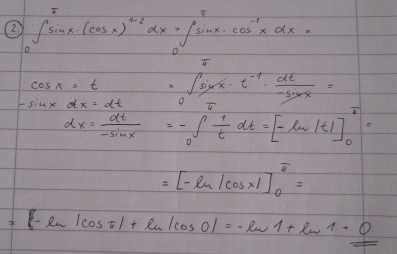 ② ∫₀^π sin x · (cos x)^(1-2) dx = ∫₀^π sin x · cos⁻¹ x dx =
cos x = t = ∫₀^π sin x · t⁻¹ · dt/(-sin x) =
-sin x dx = dt
dx = dt/(-sin x) = - ∫₀^π 1/t dt = [-ln |t|]₀^π =
= [-ln |cos x|]₀^π =
= [-ln |cos π| + ln |cos 0| = -ln 1 + ln 1 = 0